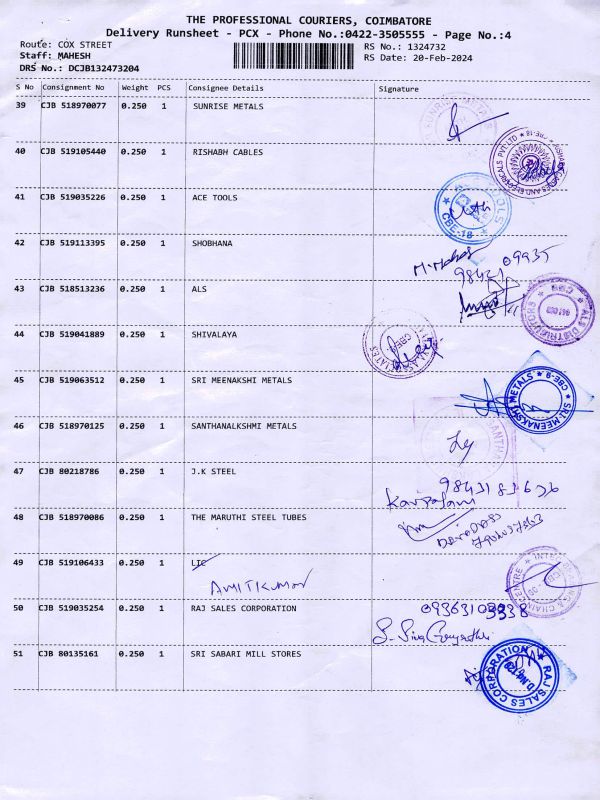 THE PROFESSIONAL COURIERS, COIMBATORE
Delivery Runsheet - PCX - Phone No.:0422-3505555 - Page No.:4
Route: COX STREET
RS No.: 1324732
Staff: MAHESH
RS Date: 20-Feb-2024
DRS No.: DCJB132473204
S No Consignment No Weight PCS Consignee Details Signature
39 CJB 518970077 0.250 1 SUNRISE METALS
40 CJB 519105440 0.250 1 RISHABH CABLES
41 CJB 519035226 0.250 1 ACE TOOLS
CBE-18
42 CJB 519113395 0.250 1 SHOBHANA
09935
98431
43 CJB 518513236 0.250 1 ALS
ALS DISTRIBUTORS CBE
44 CJB 519041889 0.250 1 SHIVALAYA
45 CJB 519063512 0.250 1 SRI MEENAKSHI METALS
SRI MEENAKSHI METALS CBE-9
46 CJB 518970125 0.250 1 SANTHANALKSHMI METALS
47 CJB 80218786 0.250 1 J.K STEEL
98431 83636
48 CJB 518970086 0.250 1 THE MARUTHI STEEL TUBES
49 CJB 519106433 0.250 1 LIC
AMITKUMAR
50 CJB 519035254 0.250 1 RAJ SALES CORPORATION
51 CJB 80135161 0.250 1 SRI SABARI MILL STORES
RAJ SALES CORPORATION